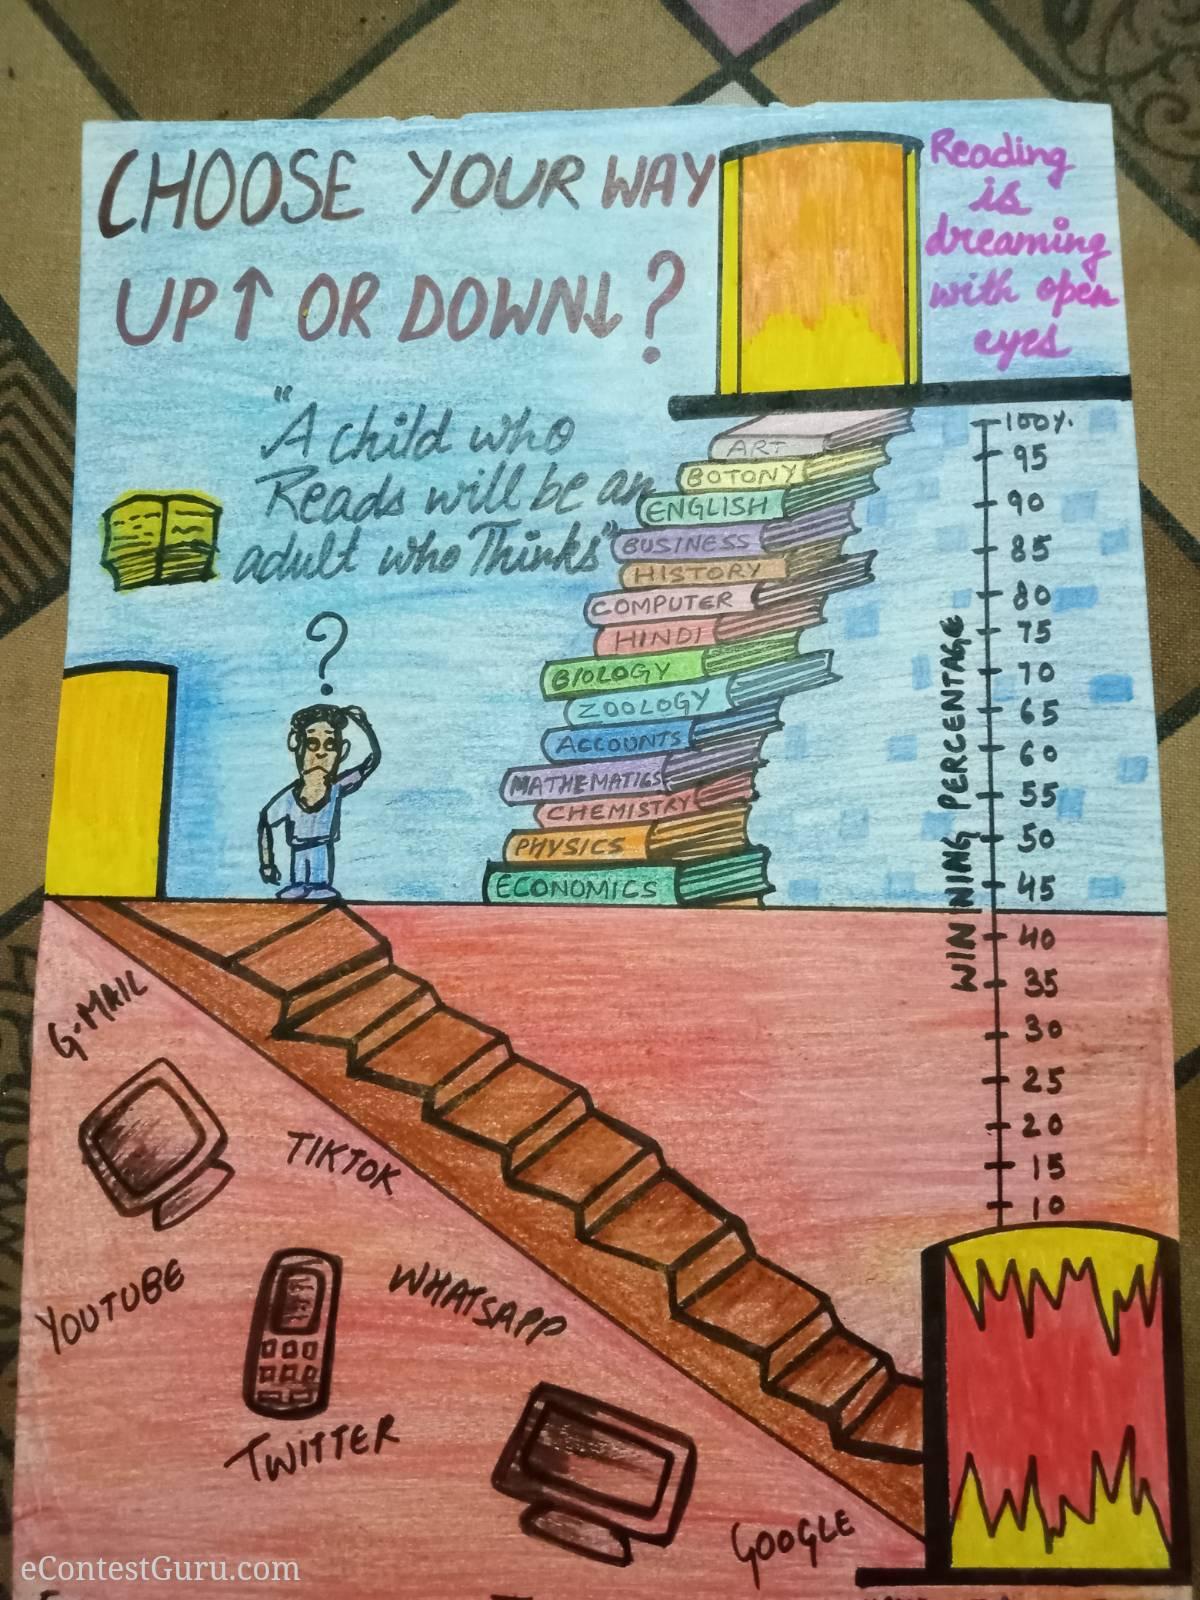 CHOOSE YOUR WAY
UP↑ OR DOWN↓?
Reading
is
dreaming
with open
eyes
"A child who
Reads will be an
adult who Thinks"
?
ART
BOTONY
ENGLISH
BUSINESS
HISTORY
COMPUTER
HINDI
BIOLOGY
ZOOLOGY
ACCOUNTS
MATHEMATICS
CHEMISTRY
PHYSICS
ECONOMICS
WINNING PERCENTAGE
100%.
95
90
85
80
75
70
65
60
55
50
45
40
35
30
25
20
15
10
G-MAIL
TIKTOK
YOUTUBE
WHATSAPP
TWITTER
GOOGLE
eContestGuru.com